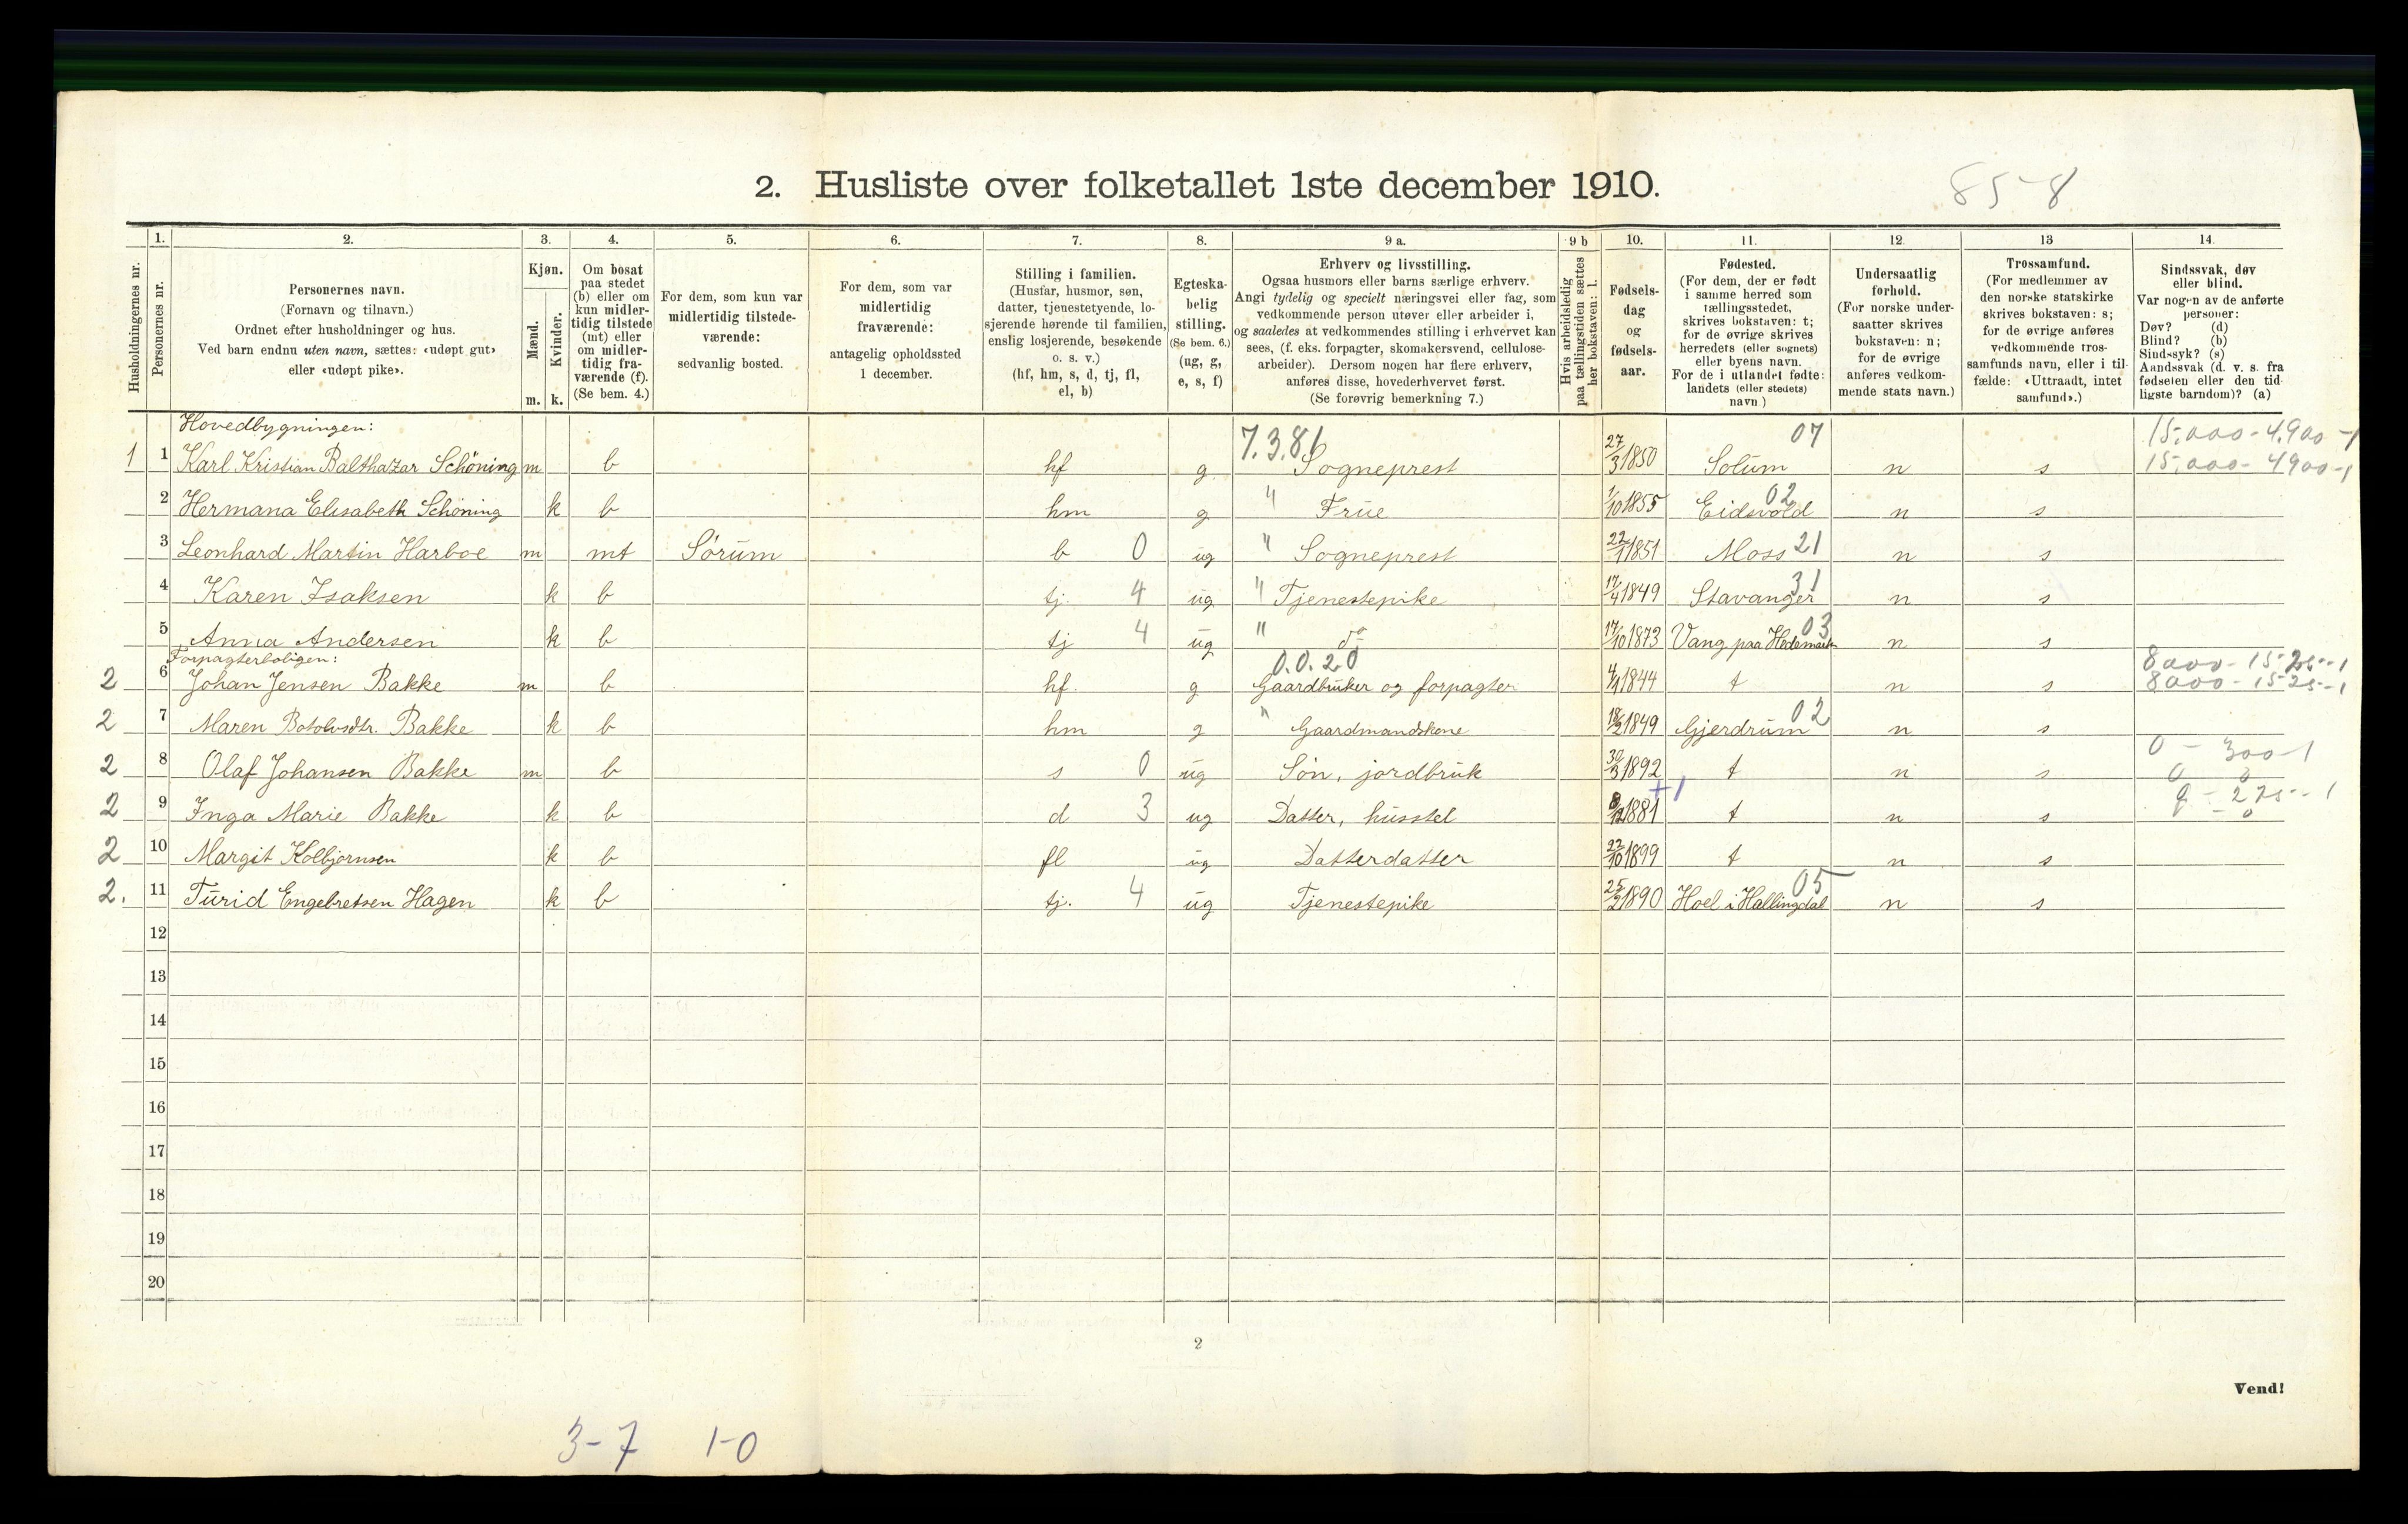 2. Husliste over folketallet 1ste december 1910.
85-8
1. 2. 3. 4. 5. 6. 7. 8. 9 a. 9 b 10. 11. 12. 13 14.
Husholdningernes nr.
Personernes nr.
Personernes navn.
(Fornavn og tilnavn.)
Ordnet efter husholdninger og hus.
Ved barn endnu uten navn, sættes: «udøpt gut»
eller «udøpt pike».
Kjøn.
Mænd.
Kvinder.
m. k.
Om bosat
paa stedet
(b) eller om
kun midler-
tidig tilstede
(mt) eller
om midler-
tidig fra-
værende (f).
(Se bem. 4.)
For dem, som kun var
midlertidig tilstede-
værende:
sedvanlig bosted.
For dem, som var
midlertidig
fraværende:
antagelig opholdssted
1 december.
Stilling i familien.
(Husfar, husmor, søn,
datter, tjenestetyende, lo-
sjerende hørende til familien,
enslig losjerende, besøkende
o. s. v.)
(hf, hm, s, d, tj, fl,
el, b)
Egteska-
belig
stilling.
(Se bem. 6.)
(ug, g,
e, s, f)
Erhverv og livsstilling.
Ogsaa husmors eller barns særlige erhverv.
Angi tydelig og specielt næringsvei eller fag, som
vedkommende person utøver eller arbeider i,
og saaledes at vedkommendes stilling i erhvervet kan
sees, (f. eks. forpagter, skomakersvend, cellulose-
arbeider). Dersom nogen har flere erhverv,
anføres disse, hovederhvervet først.
(Se forøvrig bemerkning 7.)
Hvis arbeidsledig
paa tællingstiden sættes
her bokstaven: l.
Fødsels-
dag
og
fødsels-
aar.
Fødested.
(For dem, der er født
i samme herred som
tællingsstedet,
skrives bokstaven: t;
for de øvrige skrives
herredets (eller sognets)
eller byens navn.
For de i utlandet fødte:
landets (eller stedets)
navn.)
Undersaatlig
forhold.
(For norske under-
saatter skrives
bokstaven: n;
for de øvrige
anføres vedkom-
mende stats navn.)
Trossamfund.
(For medlemmer av
den norske statskirke
skrives bokstaven: s;
for de øvrige anføres
vedkommende tros-
samfunds navn, eller i til-
fælde: «Uttraadt, intet
samfund».)
Sindssvak, døv
eller blind.
Var nogen av de anførte
personer:
Døv? (d)
Blind? (b)
Sindssyk? (s)
Aandssvak (d. v. s. fra
fødselen eller den tid-
ligste barndom)? (a)
Hovedbygningen: 7.3.81 07 15.000-4.900-1
1 1 Karl Kristian Balthazar Schöning m b hf g Sogneprest 27/3 1850 Solum n s 15.000-4900-1
2 Hermana Elisabeth Schöning k b hm g " Frue 1/10 1855 Eidsvold 02 n s
3 Leonhard Martin Harboe m mt Sørum b 0 ug " Sogneprest 22/1 1851 Moss 21 n s
4 Karen Isaksen k b tj. 4 ug " Tjenestepike 17/4 1849 Stavanger 31 n s
5 Anna Andersen k b tj 4 ug " do 17/10 1873 Vang paa Hedemarken 03 n s
Forpagterboligen: 0.0.20 8000-1525-1
2 6 Johan Jensen Bakke m b hf. g Gaardbruker og forpagter 4/1 1844 t n s 8000-1525-1
2 7 Maren Botolvsdtr. Bakke k b hm g " Gaardmandskone 18/2 1849 Gjerdrum 02 n s
2 8 Olaf Johansen Bakke m b s 0 ug Søn, jordbruk 30/3 1892 t n s 0-300-1
0 0
+1
2 9 Inga Marie Bakke k b d 3 ug Datter, husstel 8/12 1881 t n s 0-275-1
- 0
2 10 Margit Kolbjørnsen k b fl ug Datterdatter 22/10 1899 t n s
2. 11 Turid Engebretsen Hagen k b tj. 4 ug Tjenestepike 25/2 1890 Hoel i Hallingdal 05 n s
12
13
14
15
16
17
18
19
20
2
Vend!
3-7 1-0